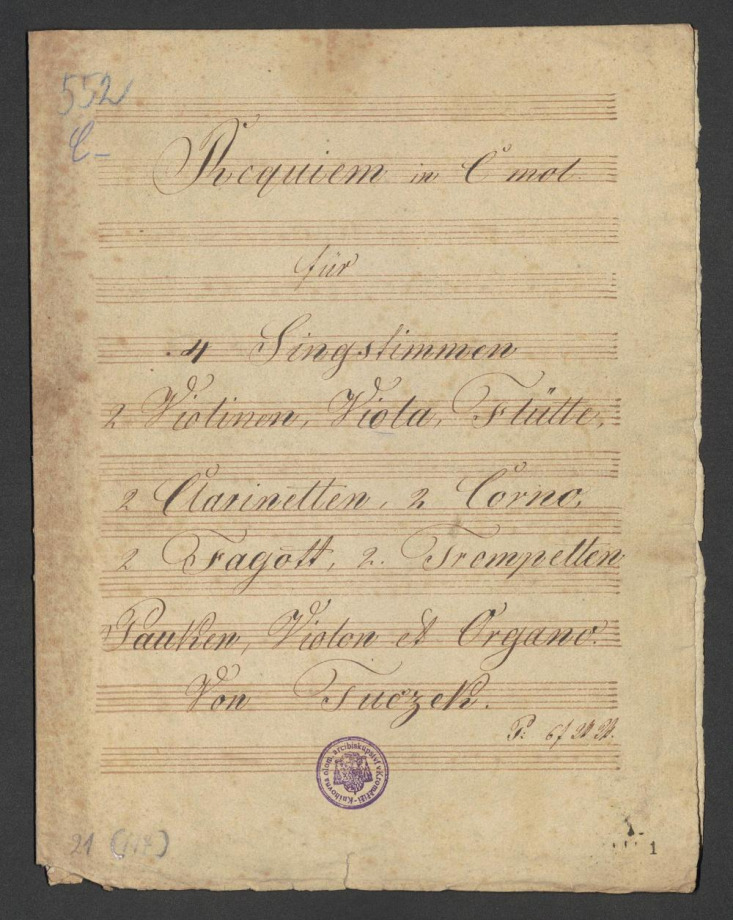 552
C-
Requiem in C mol.
für
4 Singstimmen
2 Violinen, Viola, Flütte,
2 Clarinetten, 2 Corno,
2 Fagott, 2. Trompetten
Pauken, Violon et Organo.
Von Tuczek.
Knihovna olom. arcibiskupství v Kroměříži
21 (117)
1